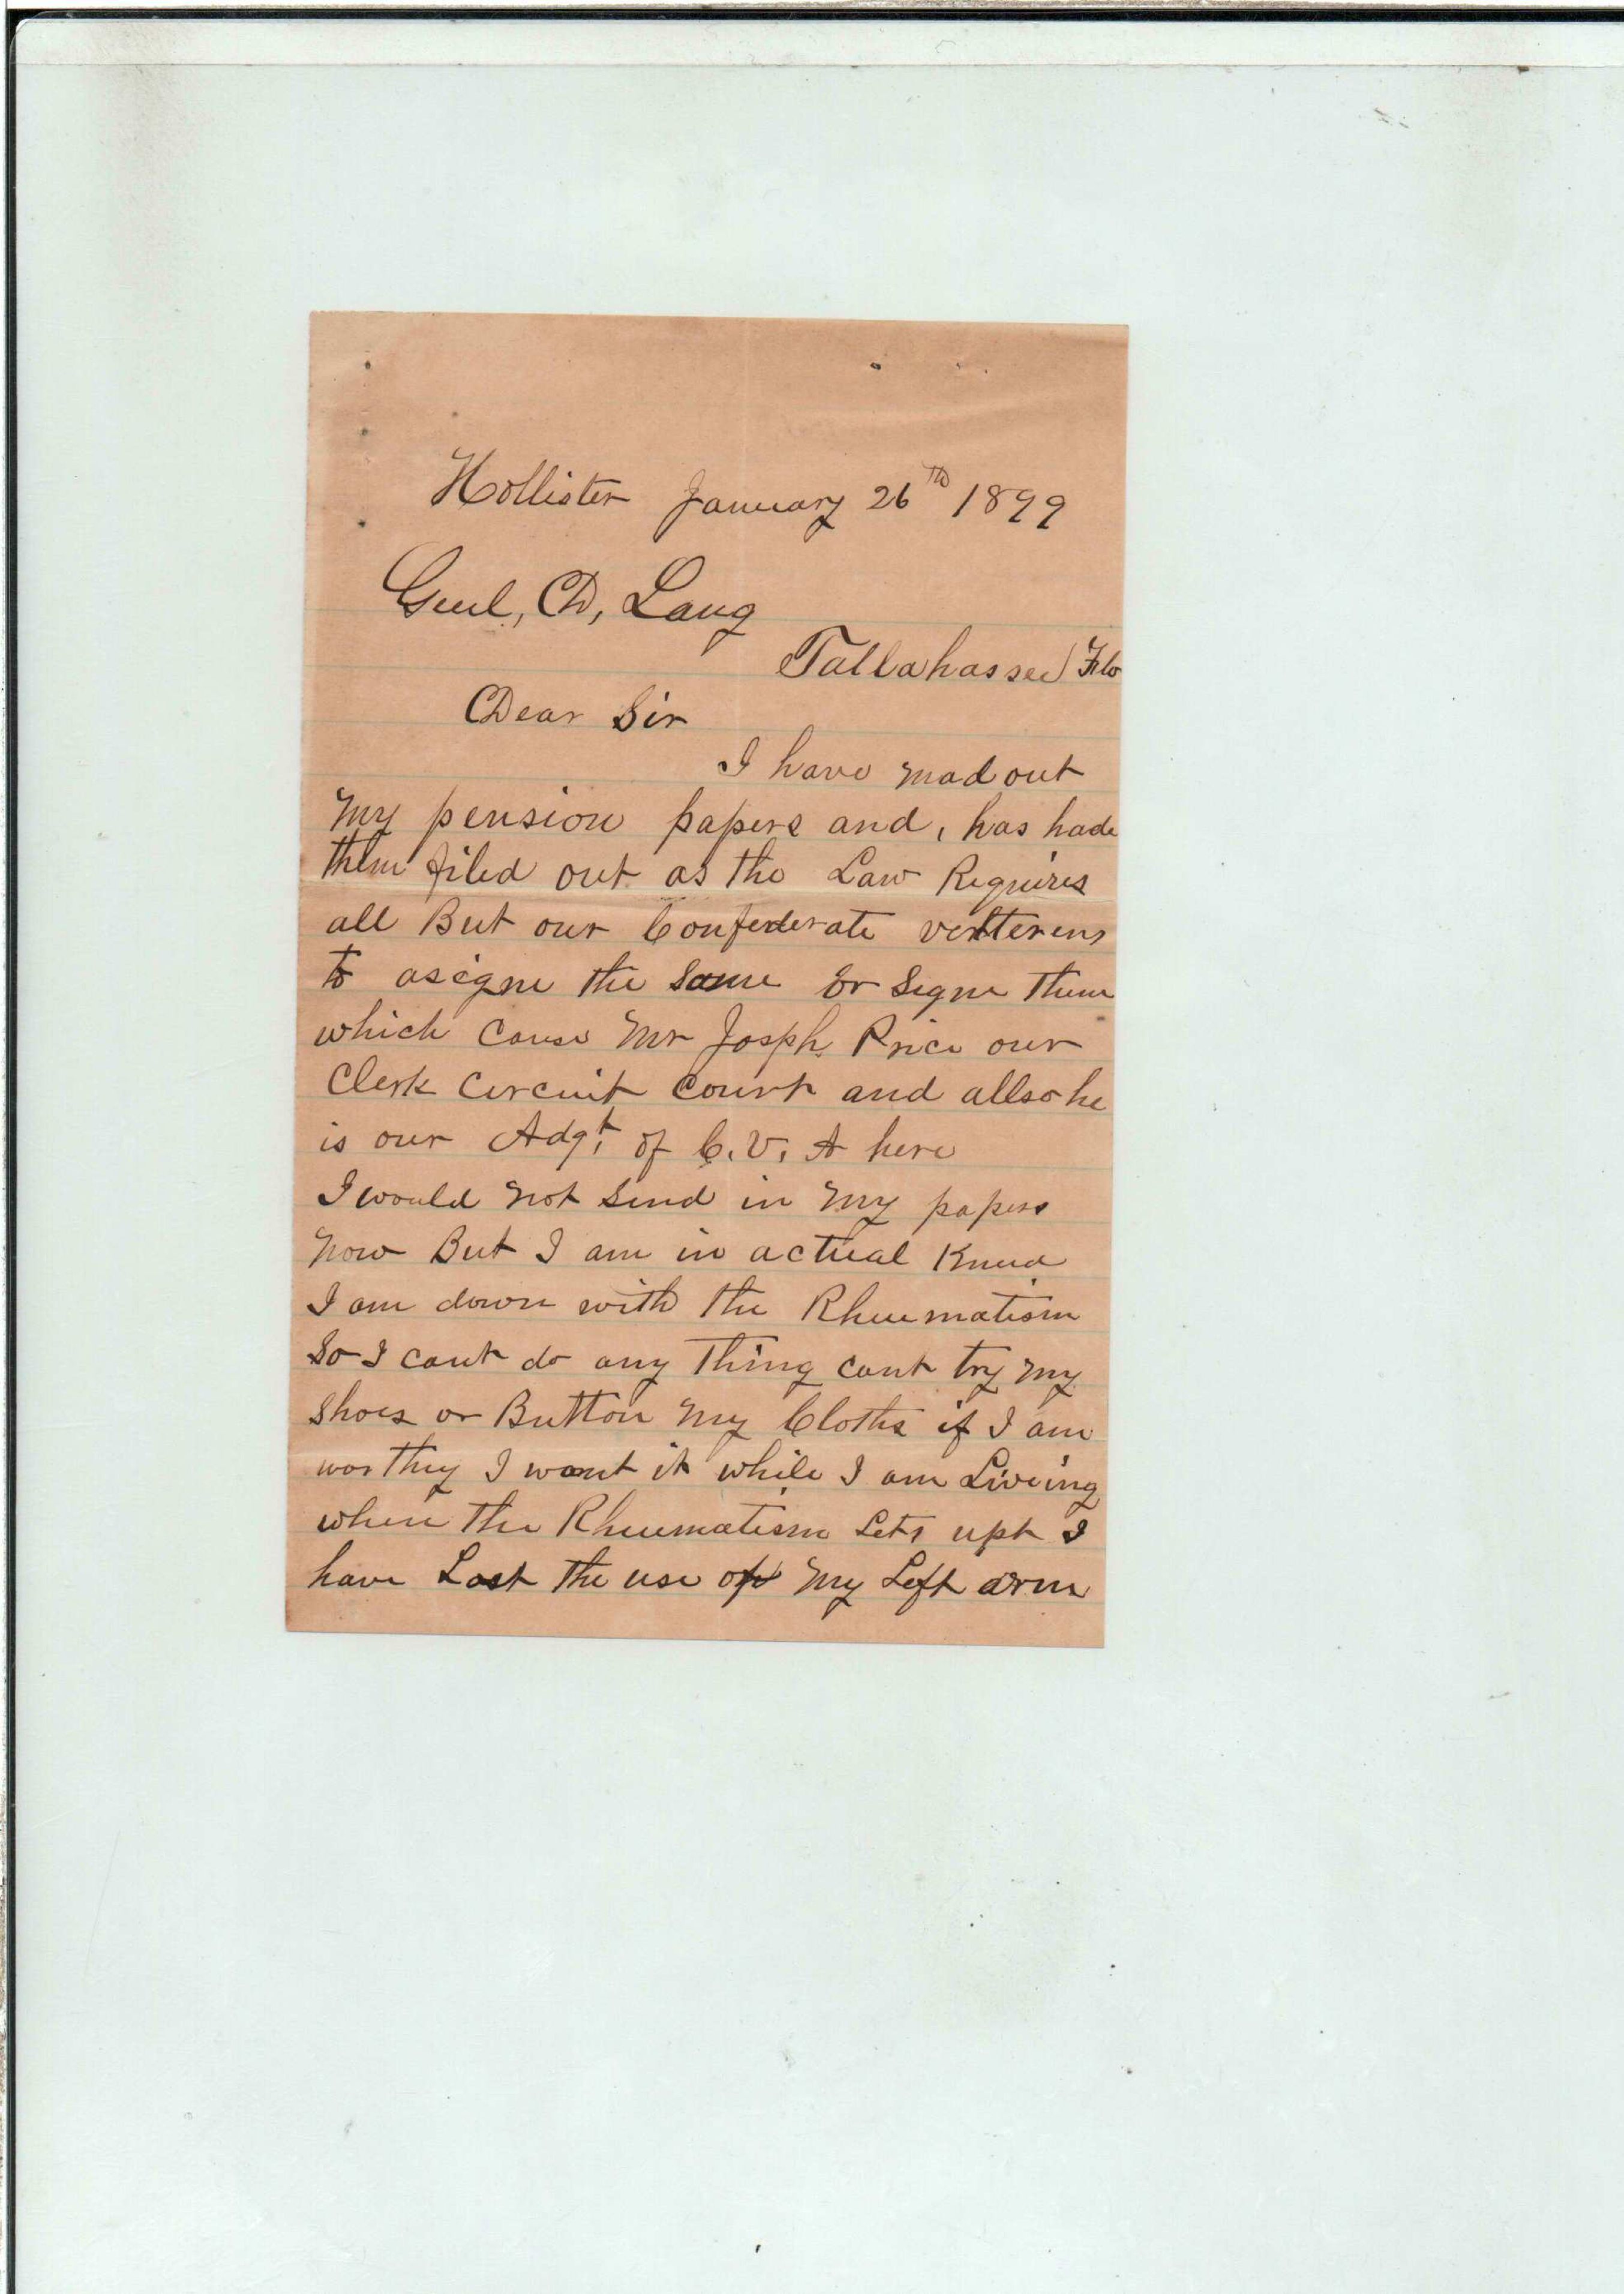 Hollister January 26th 1899
Genl, D, Lang
Tallahassee Fla
Dear Sir
I have mad out
my pension papers and, has hade
them filed out as the Law Requires
all But our Confederate vertterens
to asigne the Same or Signe them
which Cause Mr Josph Price our
Clerk Circuit Court and allso he
is our Adgt. of C. V. A here
I would not Send in my papers
now But I am in actual Kneed
I am down with the Rheumatism
So I cant do any Thing cant try my
Shoes or Button my Cloths if I am
worthy I want it while I am Liveing
when the Rheumatism Lets upt I
have Lost the use of my Left arm